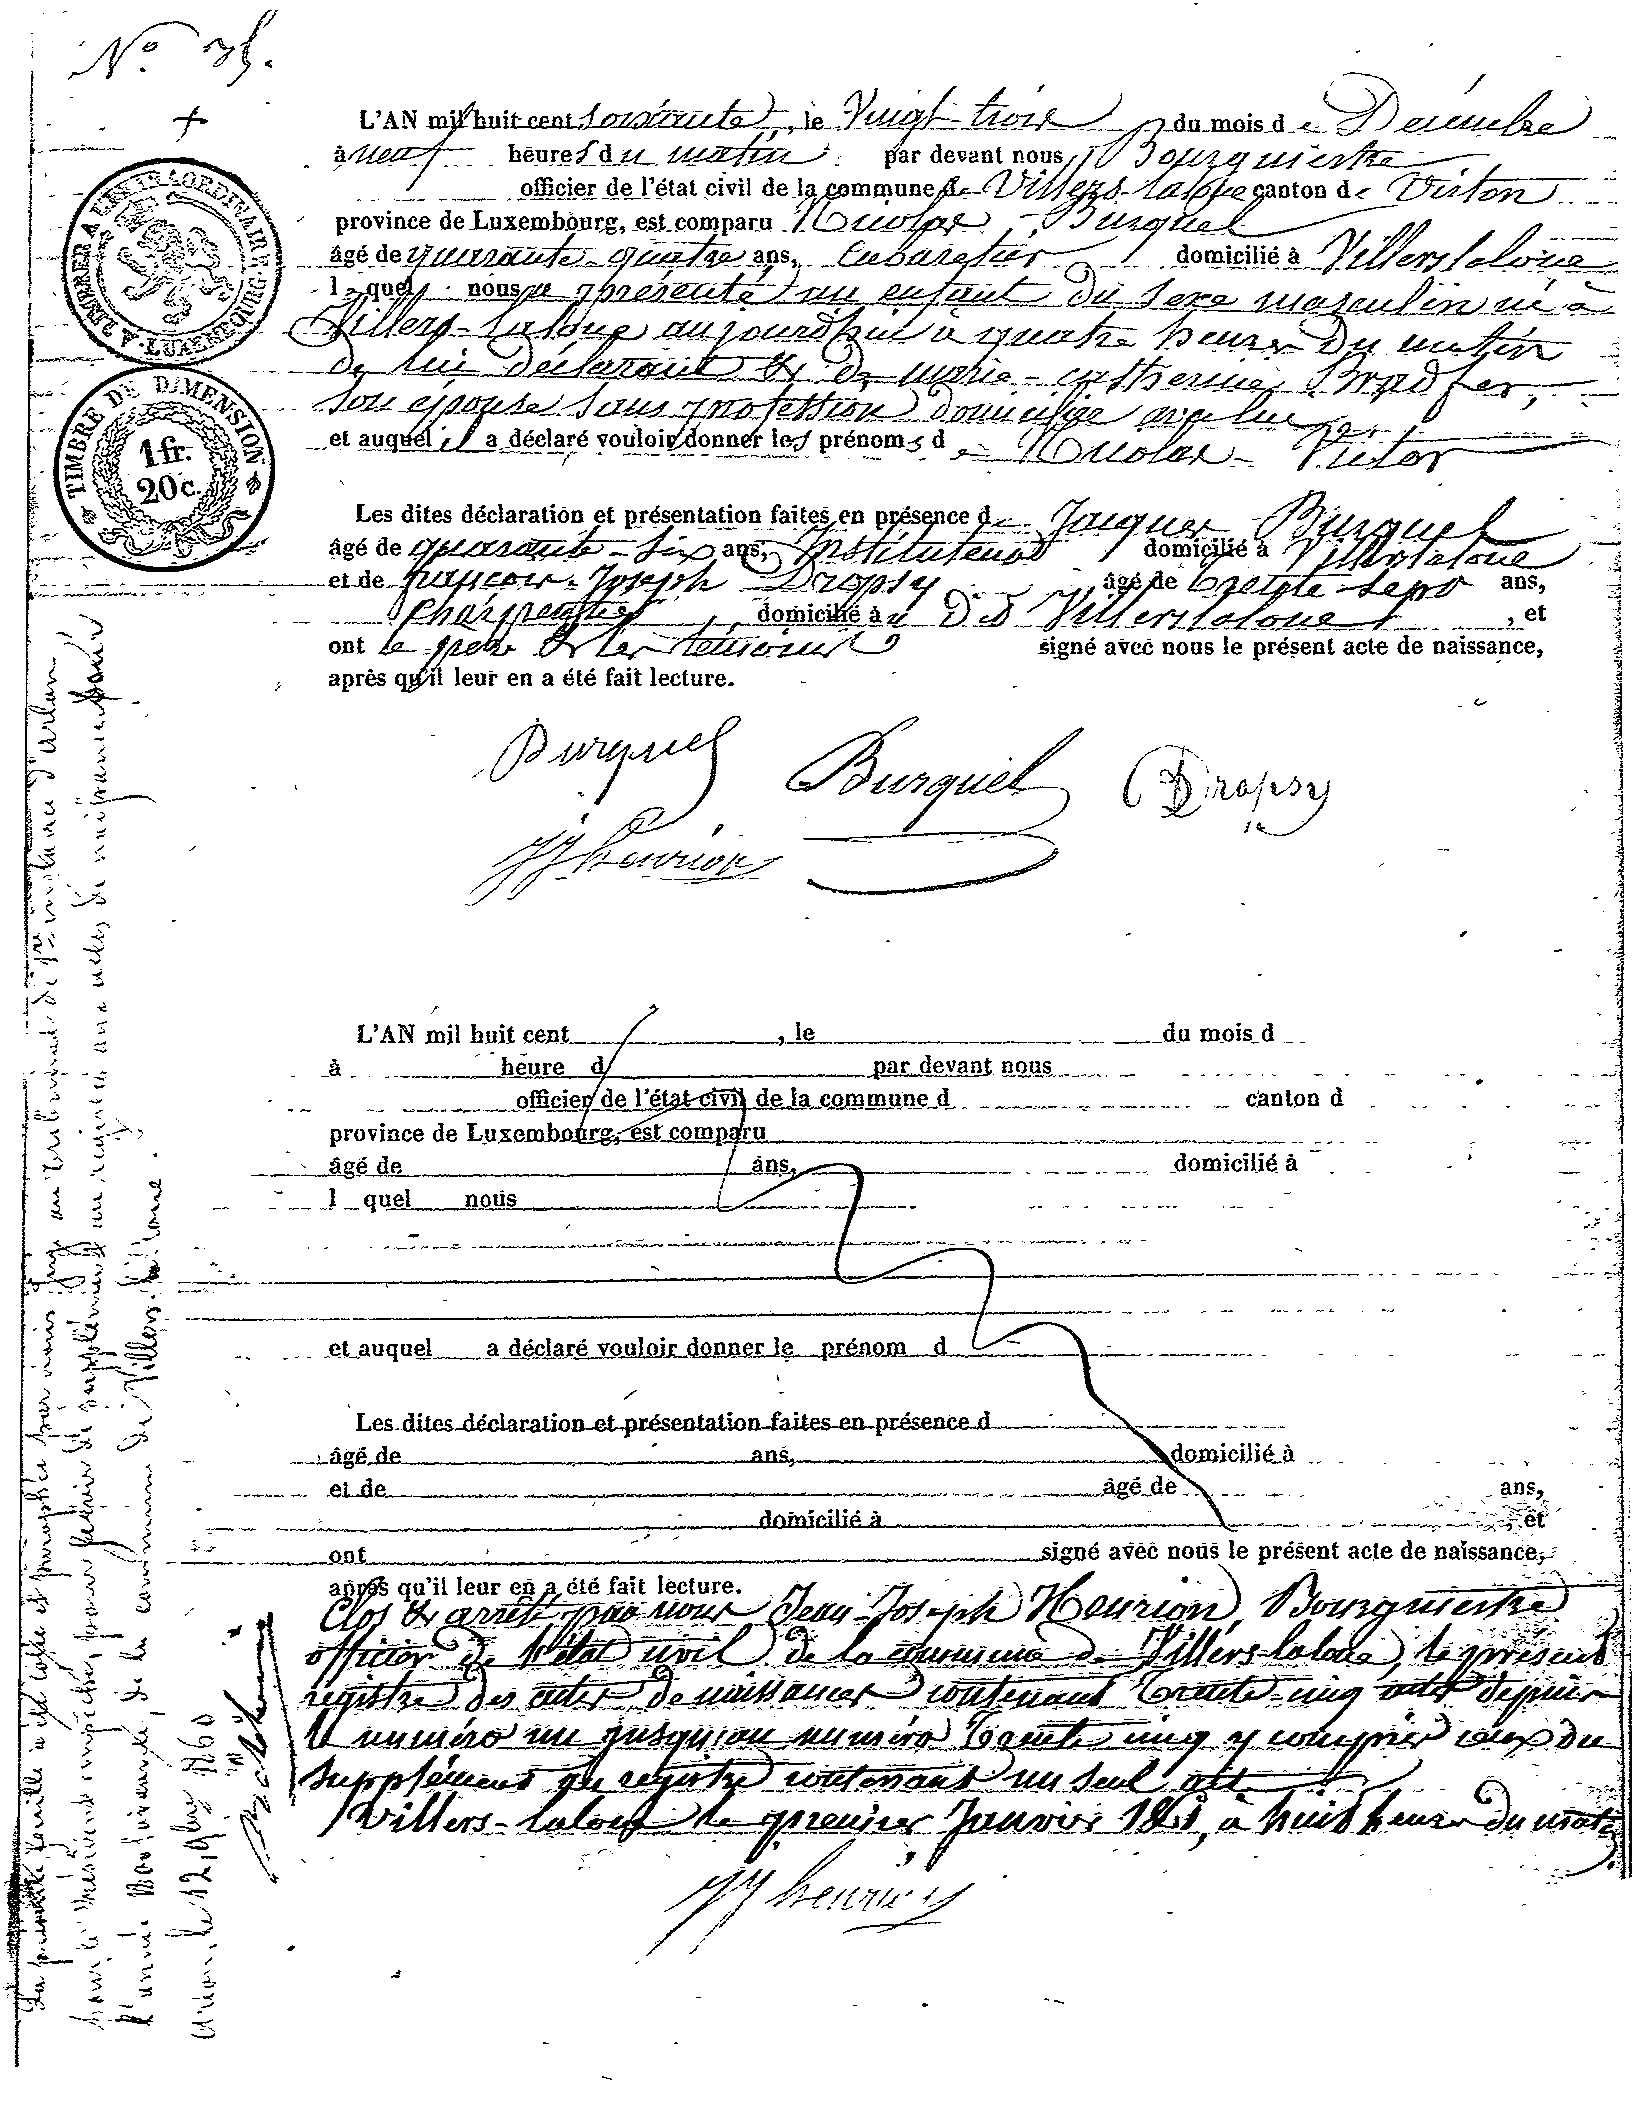 N° 35.
+
L'AN mil huit cent soixante, le Vingt-trois du mois de Décembre
à neuf heures du matin par devant nous Bourgmestre
officier de l'état civil de la commune de Villers-laloue canton de Virton
province de Luxembourg, est comparu Nicolas Burquel
âgé de quarante-quatre ans, Cabaretier domicilié à Villerslaloue
lequel nous a présenté un enfant du sexe masculin né à
Villers-laloue aujourd'hui à quatre heures du matin
de lui déclarant & de marie-catherine Bradfer,
son épouse sans profession domiciliée avec lui
et auquel il a déclaré vouloir donner les prénoms de Nicolas-Victor
Les dites déclaration et présentation faites en présence de Jacques Burquel
âgé de quarante-six ans, Instituteur domicilié à Villerslaloue
et de françois-Joseph Dropsy âgé de trente-sept ans,
Charpentier, domicilié à u D.t Villerslaloue, et
ont le père & les témoins signé avec nous le présent acte de naissance,
après qu'il leur en a été fait lecture.
Burquel Burquel Dropsy
JJ henrion
A TIMBRER A L'EXTRAORDINAIRE. LUXEMBOURG.
TIMBRE DE DIMENSION
1 fr.
20 c.
L'AN mil huit cent , le du mois d
à heure d par devant nous
officier de l'état civil de la commune d canton d
province de Luxembourg, est comparu
âgé de ans, domicilié à
l quel nous
et auquel a déclaré vouloir donner le prénom d
Les dites déclaration et présentation faites en présence d
âgé de ans, domicilié à
et de âgé de ans,
domicilié à , et
ont signé avec nous le présent acte de naissance,
après qu'il leur en a été fait lecture.
Clos & arrêté par nous Jean-Joseph Henrion, Bourgmestre
officier de l'état civil de la commune de Villers-laloue, le présent
registre des actes de naissances contenant trente-cinq actes depuis
le numéro un jusqu'au numéro trente cinq y compris ceux du
supplément au registre contenant un seul acte
Villers-laloue le premier Janvier 1861, à huit heures du matin
JJ henrion
La présente feuille a été cotée et paraphée par nous Juge au tribunal de 1re instance d'arlon
pour le Président empêché, pour servir de supplément au registre aux actes de naissance pour
l'année Mil soixante, de la commune de Villers-la loue.
Arlon, le 12 9bre 1860